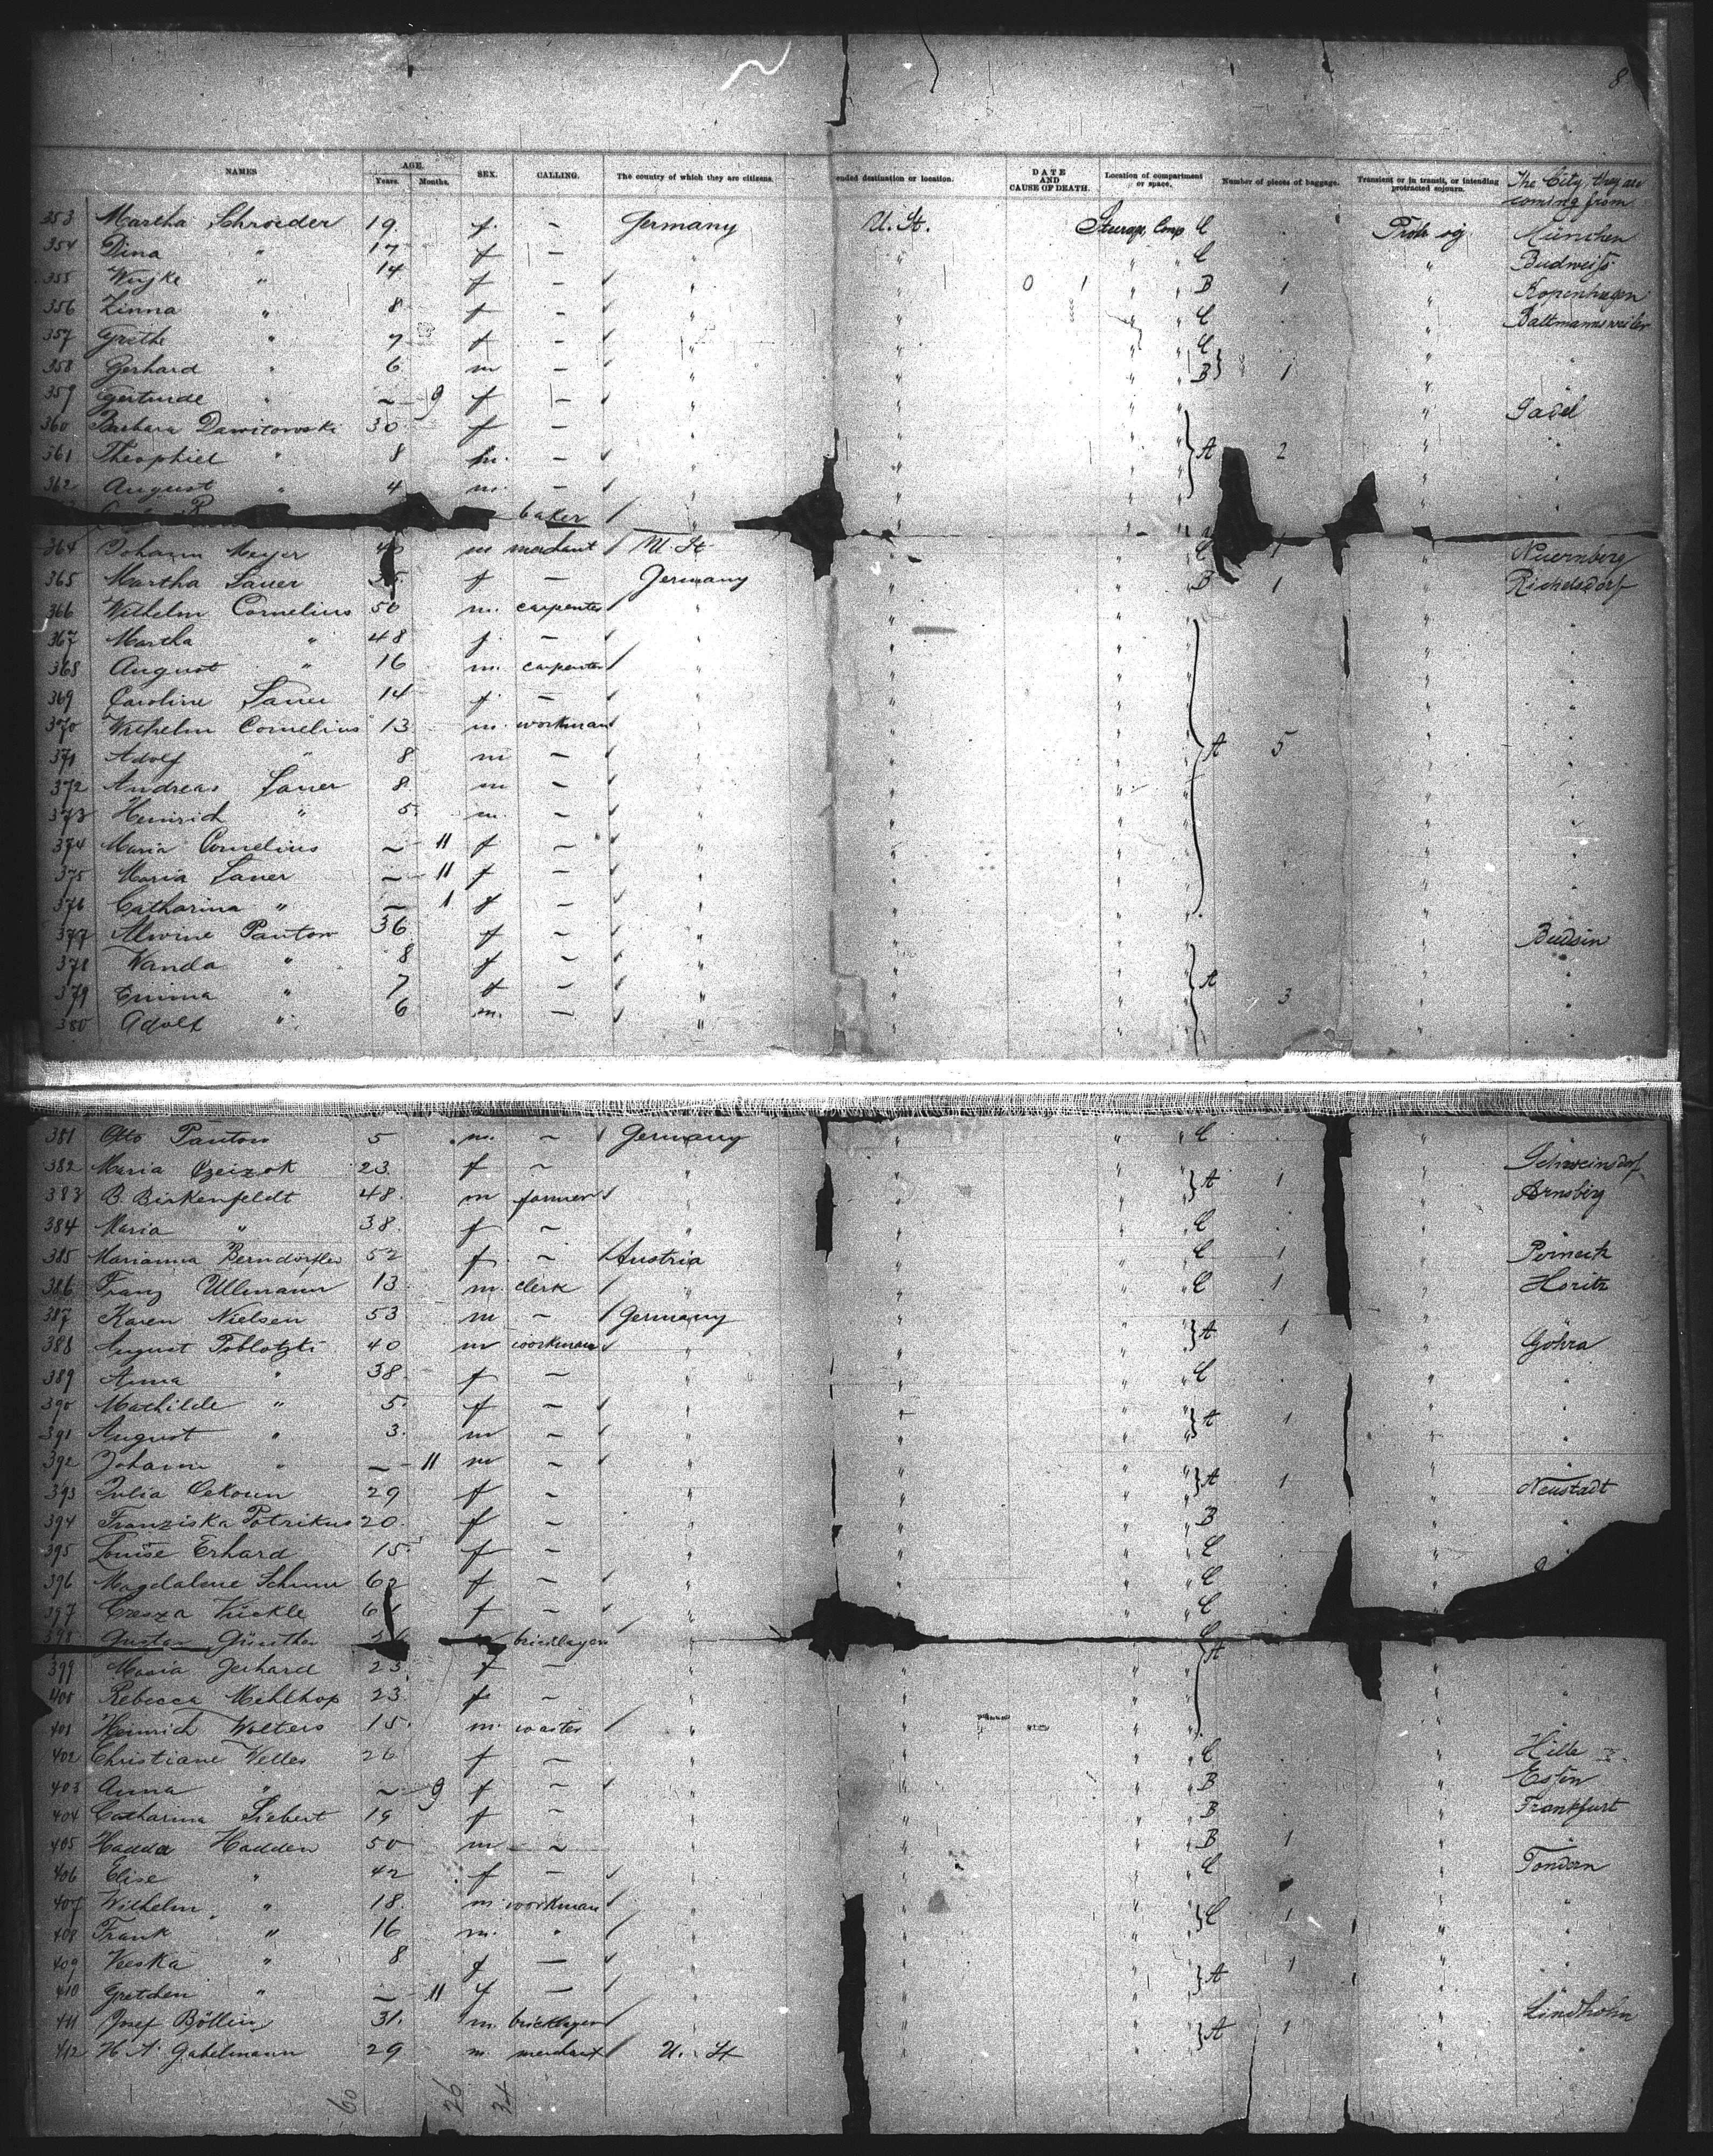 8
NAMES AGE. Years. Months. SEX. CALLING. The country of which they are citizens. ended destination or location. DATE AND CAUSE OF DEATH. Location of compartment or space. Number of pieces of baggage. Transient or in transit, or intending protracted sojourn. The City they are coming from
353 Martha Schroeder 19 f. - Germany U. St. Steerage Comp C München
354 Dina " 17 f - " " " " C " Budweiss
355 14 f - " " 0 1 " " B 1 " Kopenhagen
356 Zinna " 8 f - " " " " C " Baltmannsweiler
357 Grethe " 7 f - " " " " C "
358 Gerhard " 6 m - " " " " B 1 "
359 Gertrude " - 9 f - " " " " " Gadel
360 Barbara Dawitowski 30 f - " " " " "
361 Theophiel " 8 m. - " " " " A 2 "
362 August " 4 m. - " " " "
baker
364 Johann Meyer m merchant U St " " " C 1 " Nuernberg
365 Martha Sauer f - Germany " " " B 1 " Richelsdorf
366 Wilhelm Cornelius 50 m. carpenter " " " " "
367 Martha " 48 f. - " " " " "
368 August " 16 m. carpenter " " " " "
369 Caroline Sauer 14 f - " " " " "
370 Wilhelm Cornelius 13 m. workman " " " " "
371 Adolf " 8 m - " " " " A 5 "
372 Andreas Sauer 8 m - " " " " "
373 Heinrich " 5 m. - " " " " "
374 Maria Cornelius - 11 f - " " " " "
375 Maria Sauer - 11 f - " " " " "
376 Catharina " - 1 f - " " " " "
377 Alwine Panton 36 f - " " " " " Budsin
378 Wanda " 8 f - " " " " "
379 Emma " 7 f - " " " " A 3 "
380 Adolf " 6 m. - " " " " "
381 Otto Panton 5 m. - Germany " " " C "
382 Maria Czeizok 23 f - " " " " " Schweinsdorf
383 B. Birkenfeldt 48 m farmer " " " " A 1 " Arnsberg
384 Maria " 38 f - " " " " C "
385 Marianna Berndörfler 52 f - Austria " " " C 1 " Perneck
386 Franz Ullmann 13 m. clerk " " " " C 1 " Horitz
387 Karen Nielsen 53 m - Germany " " " "
388 August Poblotzki 40 m workman " " " " A 1 " Gohra
389 Anna " 38 f - " " " " C "
390 Mathilde " 5 f - " " " " "
391 August " 3 m - " " " " A 1 "
392 Johann " - 11 m - " " " " "
393 Julia Cekoun 29 f - " " " " A 1 " Neustadt
394 Franziska Potrikus 20 f - " " " " B "
395 Louise Erhard 15 f - " " " " C "
396 Magdalene 62 f - " " " " C
397 f - " " " " C
398 Gustav Günther bricklayer " " " " C
399 Maria Gerhard 23 f - " " " " A "
400 Rebecca Mehlhop 23 f - " " " " "
401 Heinrich Wolters 15 m. waiter " " " " "
402 Christiane Welles 26 f - " " " " C " Hille
403 Anna " - 9 f - " " " " B "
404 Catharina Siebert 19 f - " " " " B " Frankfurt
405 Hadda Hadden 50 m - " " " " B 1 "
406 Elise " 42 f - " " " " C " Tondern
407 Wilhelm " 18 m workman " " " "
408 Frank " 16 m. " " " " " C 1 "
409 " 8 f - " " " " "
410 Gretchen " - 11 f - " " " " A 1 "
411 Josef Böllein 31 m. bricklayer " " " " " Lindholm
412 H. A. Gahelmann 29 m. merchant U. St " " " A 1 "
60 26 34